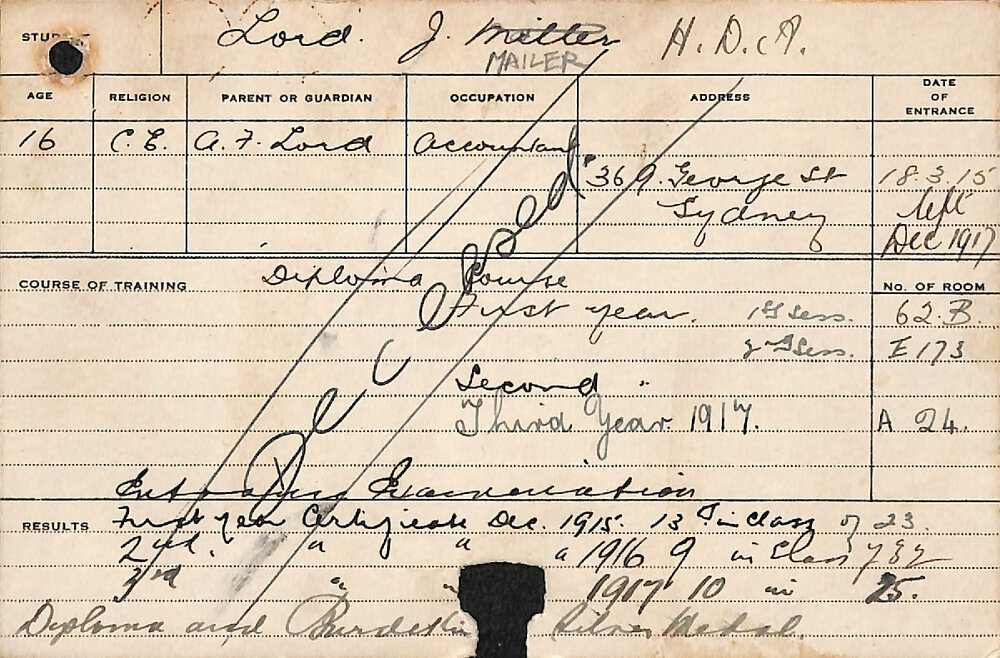 Lord. J. Miller H.D.A.
MAILER
AGE RELIGION PARENT OR GUARDIAN OCCUPATION ADDRESS DATE OF ENTRANCE
16 C.E. A. F. Lord Accountant
369. George St 18.3.15
Sydney left
Dec 1917
COURSE OF TRAINING Diploma Course No. OF ROOM
First year. 1st Sess. 62.B.
2nd Sess. E 173
Second "
Third Year 1917. A 24.
Deceased
Entrance Examination
RESULTS First year Certificate Dec. 1915. 13th in class of 23.
2nd. " " " 1916 9 in Class of 32
3rd " " 1917 10 in 25.
Diploma and Burdekin Silver Medal.